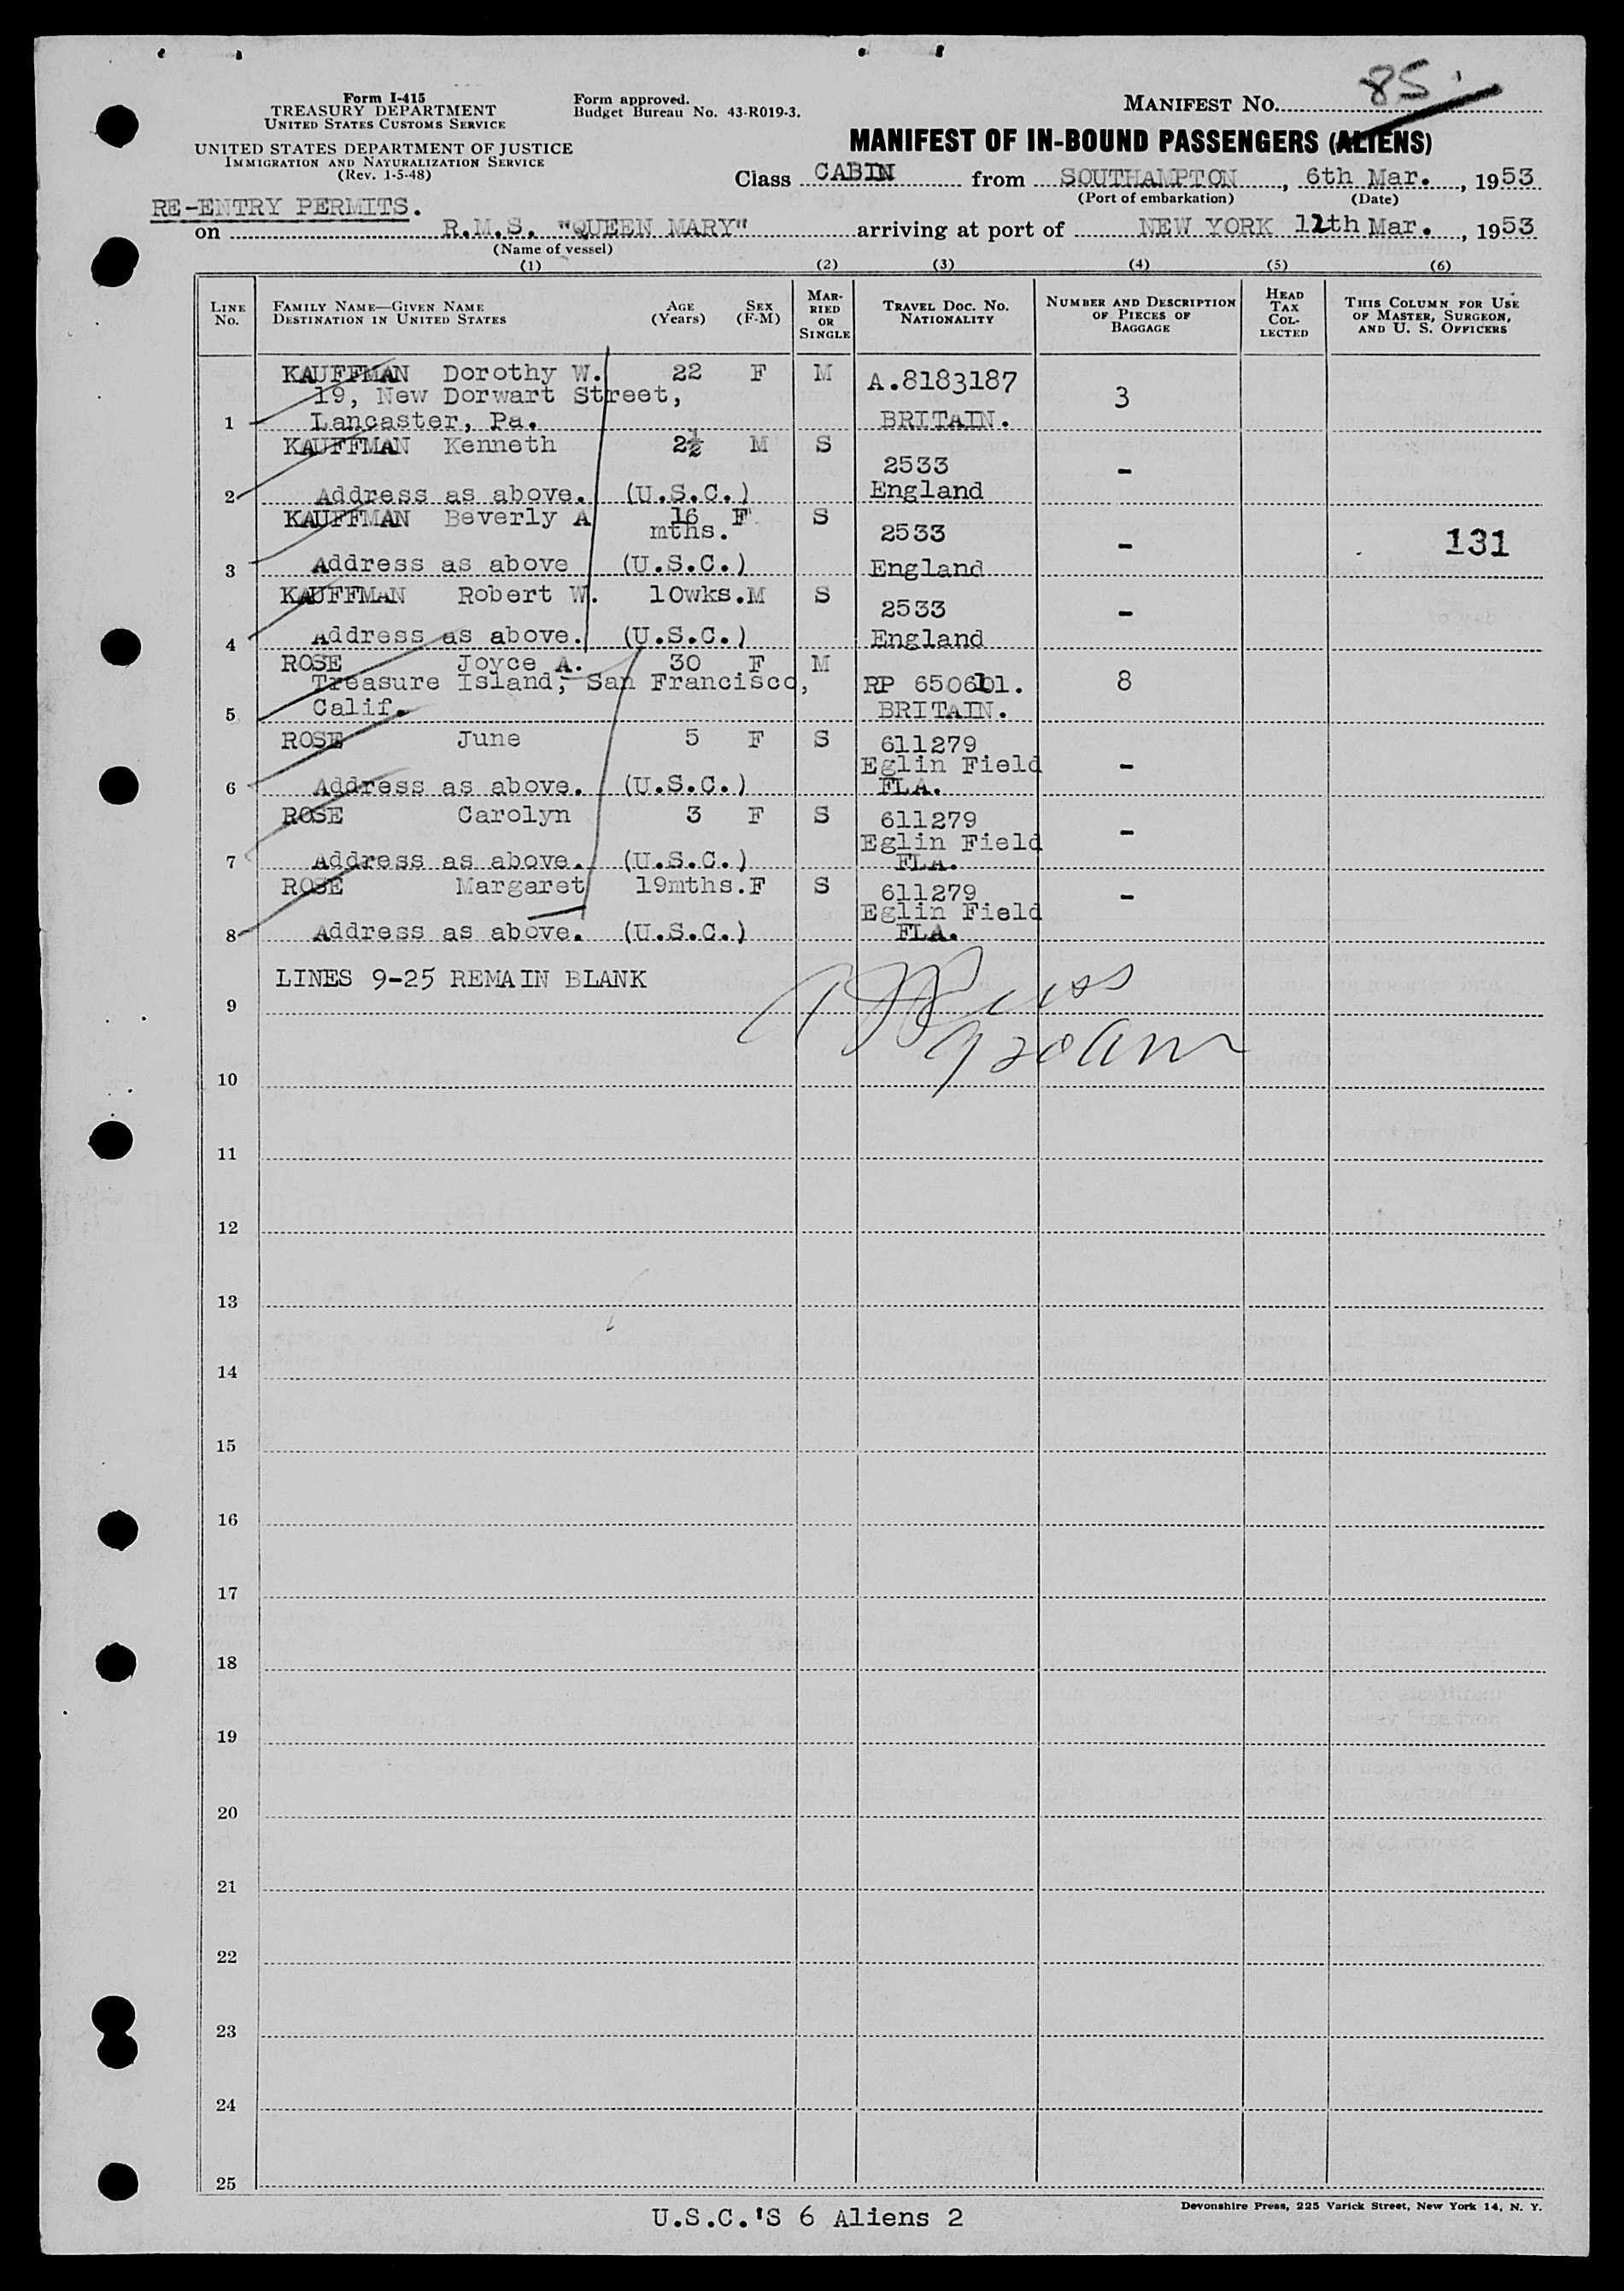 Form I-415
TREASURY DEPARTMENT
UNITED STATES CUSTOMS SERVICE
UNITED STATES DEPARTMENT OF JUSTICE
IMMIGRATION AND NATURALIZATION SERVICE
(Rev. 1-5-48)
Form approved.
Budget Bureau No. 43-R019-3.
MANIFEST NO. 85
MANIFEST OF IN-BOUND PASSENGERS (ALIENS)
Class CABIN from SOUTHAMPTON, 6th Mar., 1953
(Port of embarkation) (Date)
RE-ENTRY PERMITS.
on R.M.S. "QUEEN MARY" arriving at port of NEW YORK 12th Mar., 1953
(Name of vessel)
(1) (2) (3) (4) (5) (6)
LINE No. FAMILY NAME—GIVEN NAME DESTINATION IN UNITED STATES AGE (Years) SEX (F-M) MARRIED OR SINGLE TRAVEL DOC. NO. NATIONALITY NUMBER AND DESCRIPTION OF PIECES OF BAGGAGE HEAD TAX COLLECTED THIS COLUMN FOR USE OF MASTER, SURGEON, AND U. S. OFFICERS
KAUFFMAN Dorothy W. 22 F M A.8183187 3
19, New Dorwart Street,
1 Lancaster, Pa. BRITAIN.
KAUFFMAN Kenneth 2½ M S 2533 -
2 Address as above. (U.S.C.) England
KAUFFMAN Beverly A 16 mths. F S 2533 - 131
3 Address as above (U.S.C.) England
KAUFFMAN Robert W. 10wks. M S 2533 -
4 Address as above. (U.S.C.) England
ROSE Joyce A. 30 F M
Treasure Island, San Francisco, RP 650611. 8
5 Calif. BRITAIN.
ROSE June 5 F S 611279
Eglin Field -
6 Address as above. (U.S.C.) FLA.
ROSE Carolyn 3 F S 611279
Eglin Field -
7 Address as above. (U.S.C.) FLA.
ROSE Margaret 19mths. F S 611279
Eglin Field -
8 Address as above. (U.S.C.) FLA.
LINES 9-25 REMAIN BLANK
9
920am
10
11
12
13
14
15
16
17
18
19
20
21
22
23
24
25
U.S.C.'S 6 Aliens 2
Devonshire Press, 225 Varick Street, New York 14, N. Y.